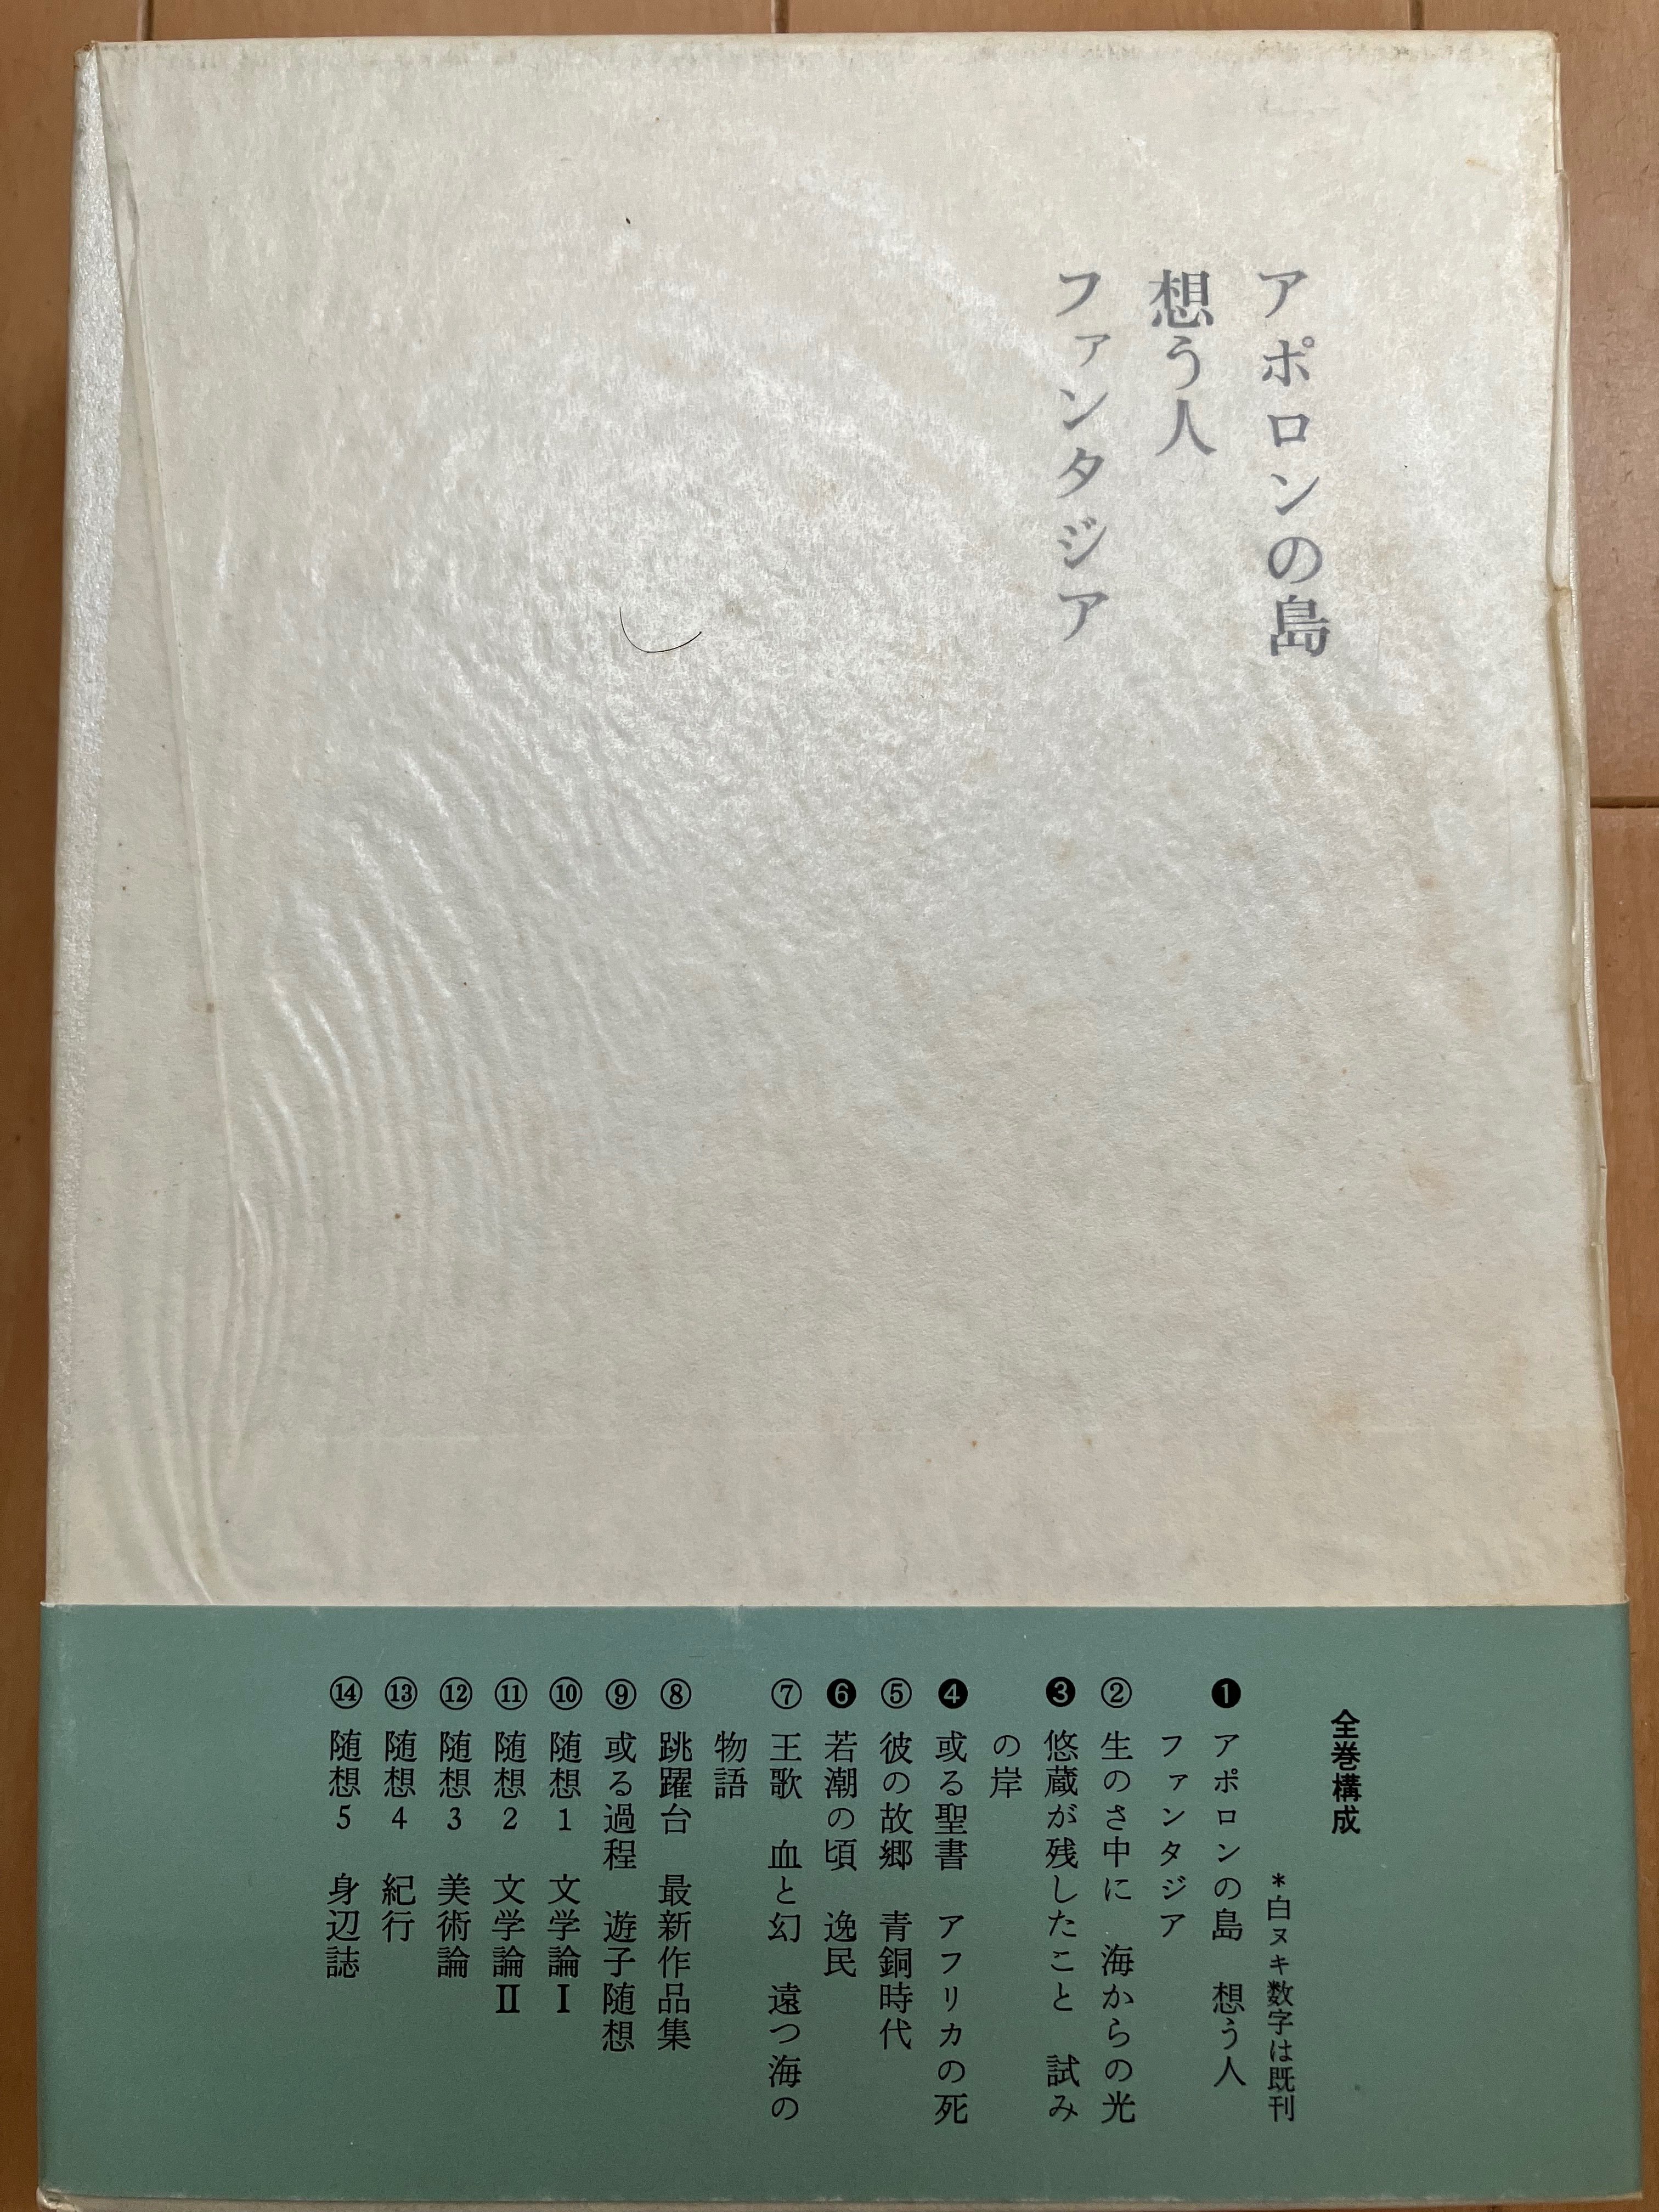 アポロンの島
想う人
ファンタジア
全巻構成
*白ヌキ数字は既刊
❶ アポロンの島 想う人
ファンタジア
② 生のさ中に 海からの光
❸ 悠蔵が残したこと 試み
の岸
❹ 或る聖書 アフリカの死
⑤ 彼の故郷 青銅時代
❻ 若潮の頃 逸民
⑦ 王歌 血と幻 遠つ海の
物語
⑧ 跳躍台 最新作品集
⑨ 或る過程 遊子随想
⑩ 随想1 文学論Ⅰ
⑪ 随想2 文学論Ⅱ
⑫ 随想3 美術論
⑬ 随想4 紀行
⑭ 随想5 身辺誌